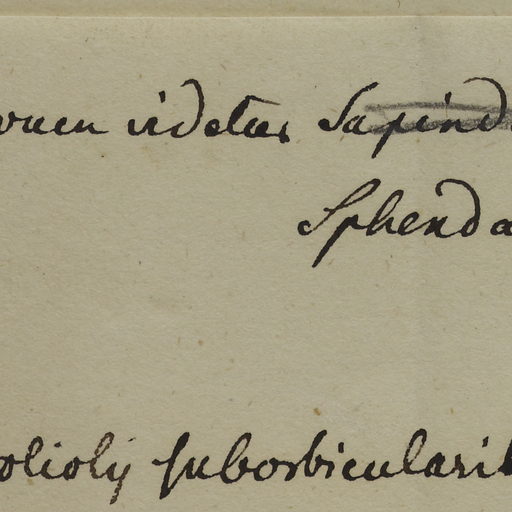 videtur Sapind
Sphenda
foliolis suborbicularib